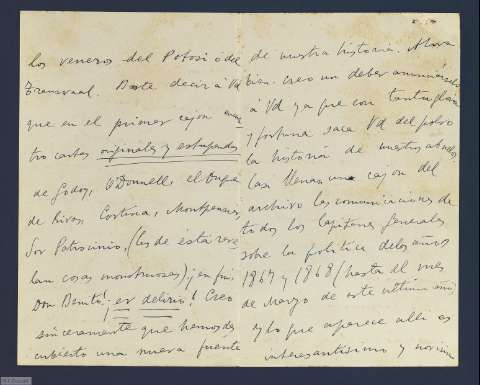 los veneros del Potosí ó del
Transvaal. Baste decir á Vd
que en el primer cajon encuen-
tro cartas originales y estupendas
de Godoy, O'Donnell, el Duque
de Rivas, Cortina, Montpensier,
Sor Patrocinio, (las de ésta reve-
lan cosas monstruosas); en fin,
Don Benito, ¡el delirio! Creo
sinceramente que hemos des-
cubierto una nueva fuente
de nuestra historia. Ahora
bien: creo un deber anunciárselo
á Vd ya que con tanta gloria
y fortuna saca Vd del polvo
la historia de nuestros abuelos.
Casi llenan un cajon del
archivo las comunicaciones de
todos los Capitanes Generales
sobre la política de los años
1867 y 1868 (hasta el mes
de Marzo de este último año)
y lo que aparece alli es
interesantísimo y